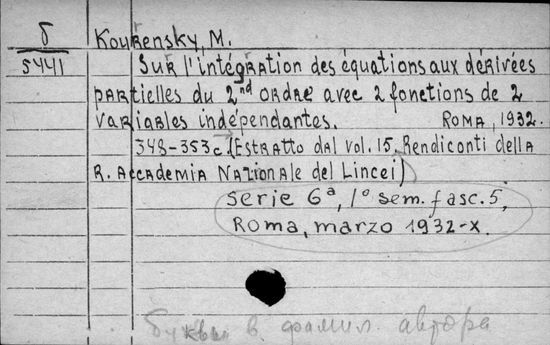 б
5441
Kourensky, M.
Sur l'intégration des équations aux dérivées
partielles du 2nd ordre avec 2 fonctions de 2
variables indépendantes. Roma, 1932.
348-353c. (Estratto dal vol. 15, Rendiconti della
R. Accademia Nazionale del Lincei)
serie 6a, 1° sem. fasc. 5,
Roma, marzo 1932-X.
буквы в фамил. автора